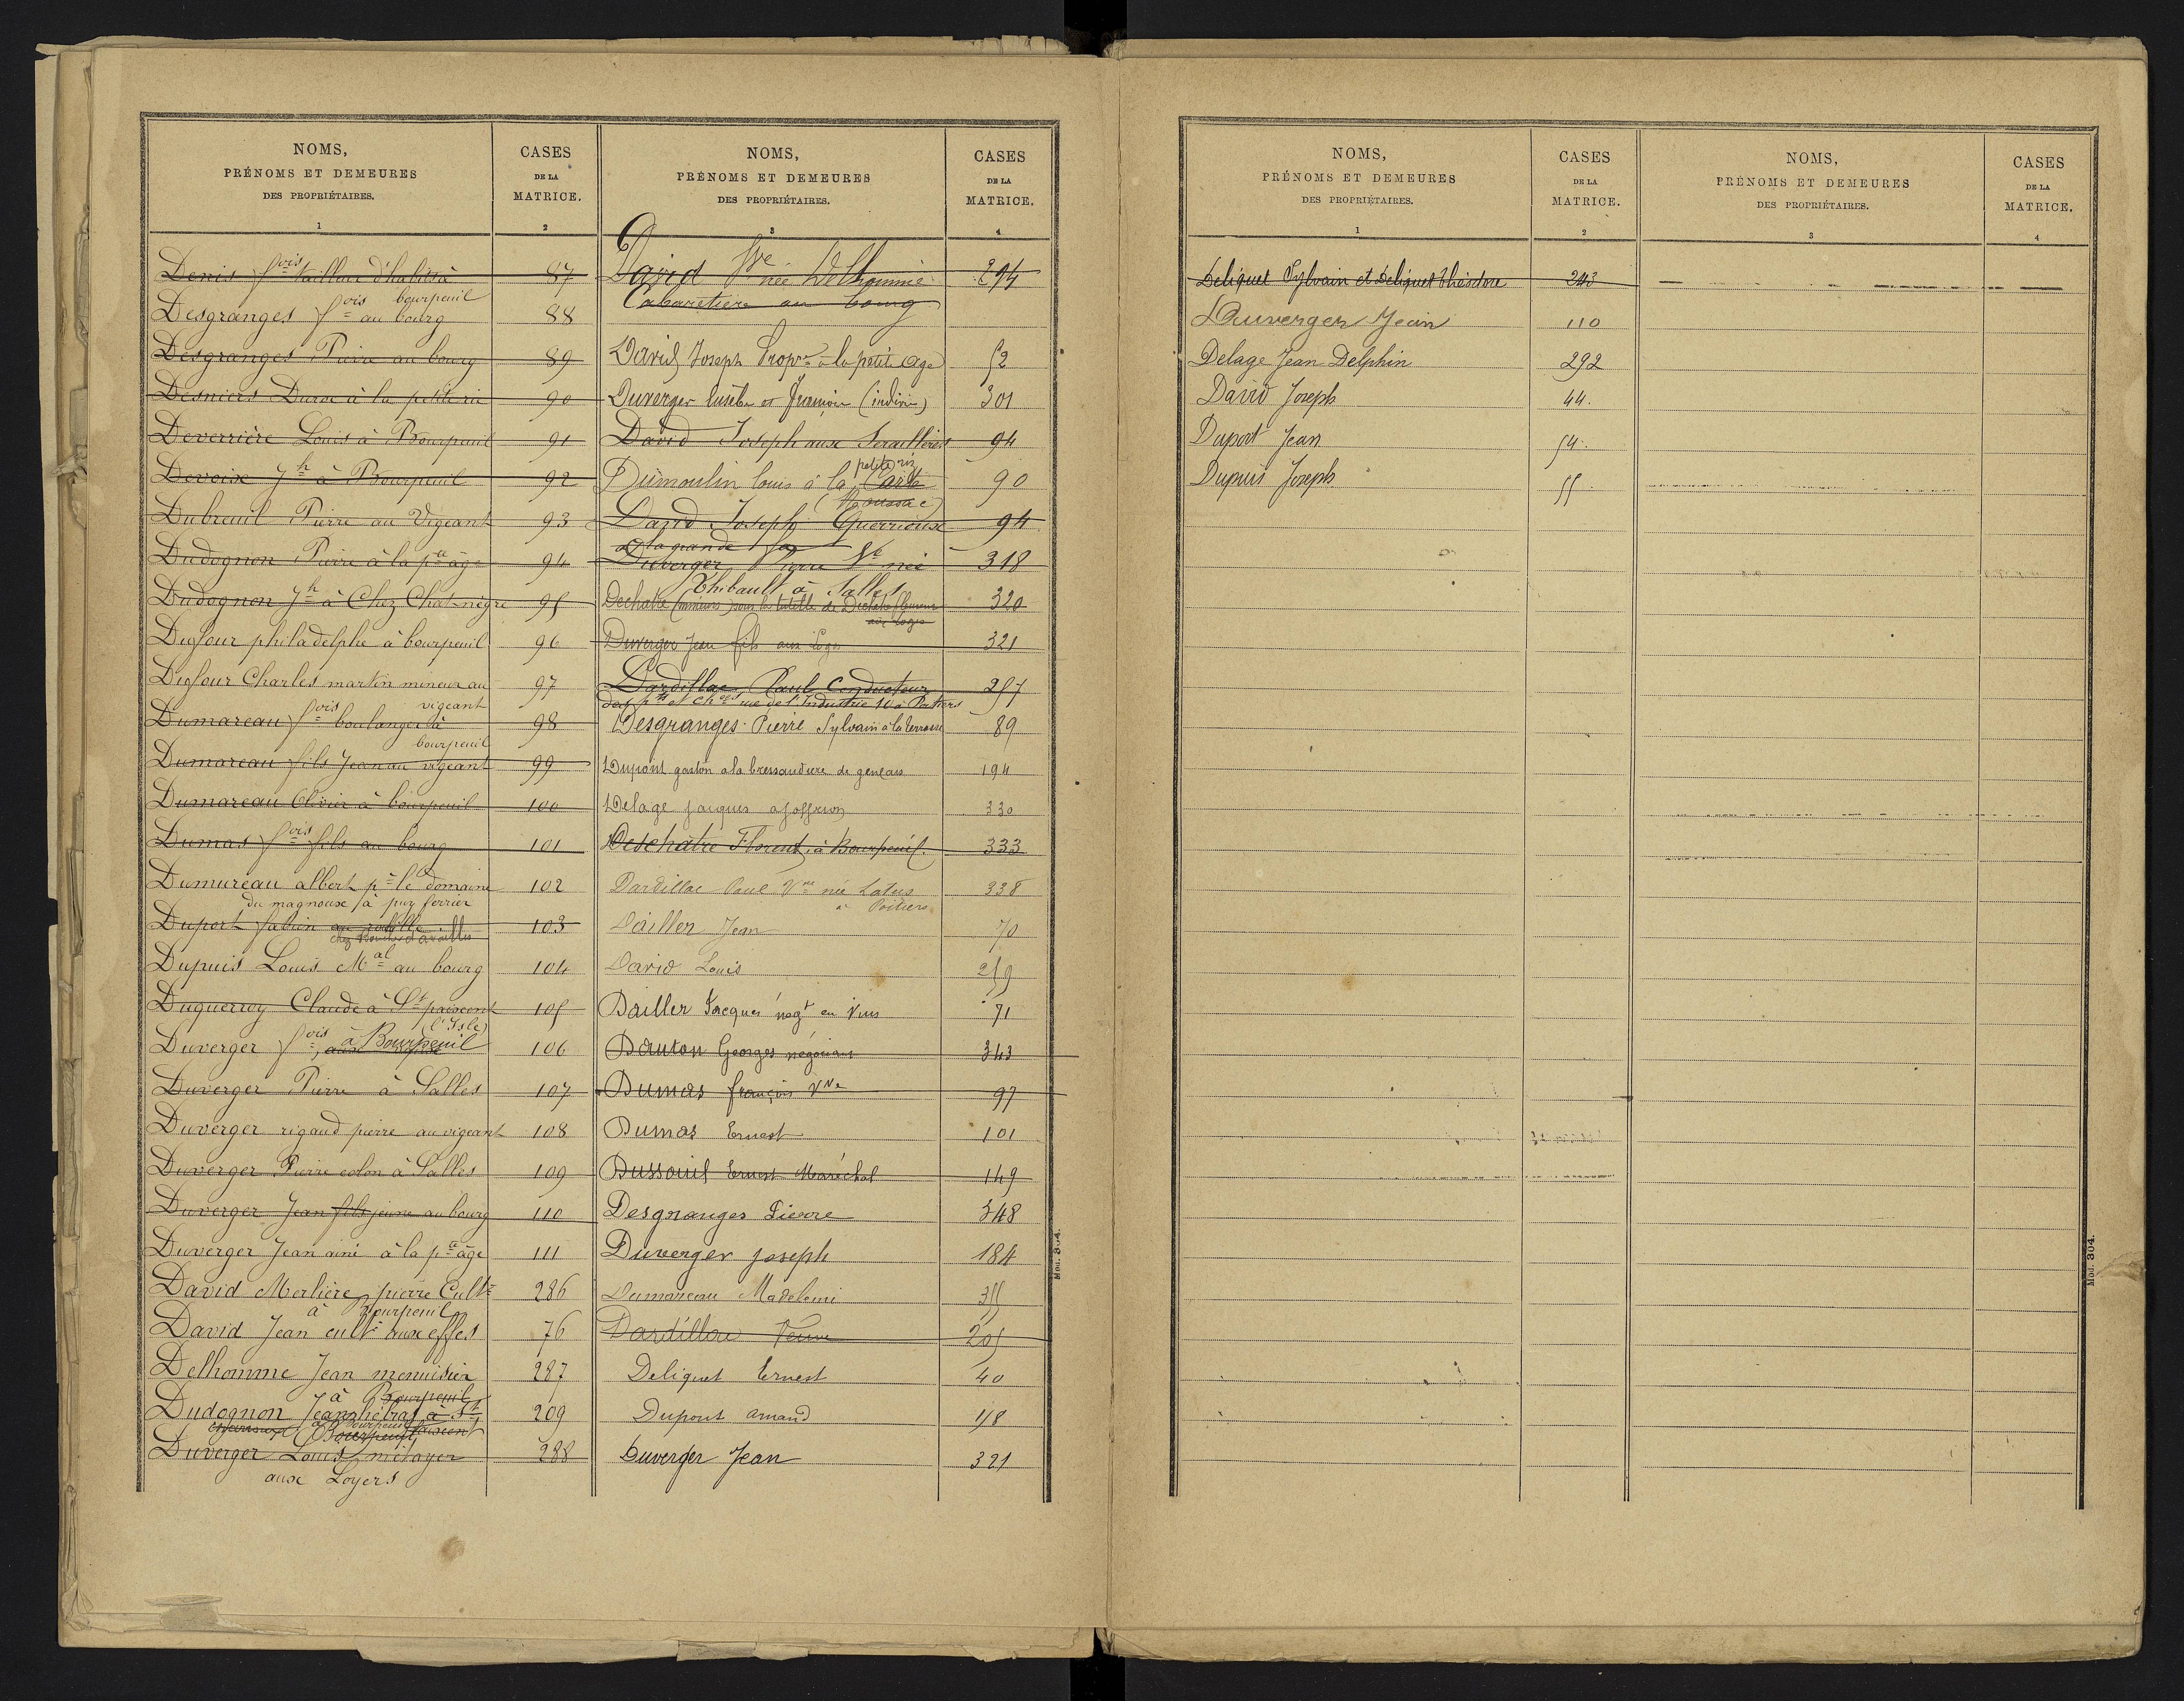 NOMS,
PRÉNOMS ET DEMEURES
DES PROPRIÉTAIRES.
1
CASES
DE LA
MATRICE.
2
Denis f.ois tailleur d'habits à 87
bourpeuil
Desgranges f.ois au bourg 88
Desgranges Pierre au bourg 89
Desniers Durox à la petite riz 90
Deverrière Louis à Bourpeuil 91
Devoise Jh à Bourpeuil 92
Dubreuil Pierre au Vigeant 93
Dudognon Pierre à la pte âge 94
Dudognon Jh à Chez Chat-nègre 95
Duflour philadelphe à bourpeuil 96
Duflour Charles martin mineur au 97
vigeant
Dumareau f.ois boulanger à 98
bourpeuil
Dumareau fils Jean au vigeant 99
Dumareau Olivier à bourpeuil 100
Dumas f.ois fils au bourg 101
Dumureau albert pr le domaine 102
du magnoux à puy ferrier
Duport fabien 103
Dupuis Louis Mal au bourg 104
Duquerroy Claude à St paixent 105
(l'Isle)
Duverger f.ois, à Bourpeuil 106
Duverger Pierre à Salles 107
Duverger rigaud pierre au vigeant 108
Duverger Pierre colon à Salles 109
Duverger Jean fils jeune au bourg 110
Duverger Jean ainé à la pte âge 111
David Merlière pierre Cultr 286
à Bourpeuil
David Jean cultr aux effes 76
Delhomme Jean menuisier 287
à Bourpeuil
Dudognon Jean à St 209
Bourpeuil
Duverger Louis métayer 288
aux Loyers
NOMS,
PRÉNOMS ET DEMEURES
DES PROPRIÉTAIRES.
3
CASES
DE LA
MATRICE.
4
David Vve née Delhomme 294
Cabaretière au bourg
David Joseph Propre à la petite age 52
Duverger Eusèbe et (indivis) 301
David Joseph aux 94
petite riz
Dumoulin louis à la 90
(Moussac)
David Joseph Querrioux 94
à la grande
Duverger Pierre Ve née 318
Thibault à Salles
Dechatre (mineurs) sous la tutelle de 320
aux Loges
Duverger Jean fils aux Loges 321
Dardillac Paul Conducteur 257
des pts et chées rue de l'Industrie 10 à Poitiers
Desgranges Pierre Sylvain à la terrasse 89
Dupont gaston a la bressaudiere de gençais 194
Delage jacques a joffrion 330
Deschatre Florent à Bourpeuil 333
Dardillac Paul Vve née Latus 338
à Poitiers
Dailler Jean 70
David Louis 259
Dailler Jacques négt en Vins 71
Dauton Georges négociant 343
Dumas françois Vve 97
Dumas Ernest 101
Dussouil Ernest Maréchal 149
Desgranges Pierre 348
Duverger joseph 184
Dumareau Madeleine 355
Veuve 205
Deliquet Ernest 40
Dupont amand 158
Duverger Jean 321
Mod. 304.
NOMS,
PRÉNOMS ET DEMEURES
DES PROPRIÉTAIRES.
1
CASES
DE LA
MATRICE.
2
Deliquet Sylvain et Deliquet théodore 243
Duverger Jean 110
Delage Jean Delphin 292
David Joseph 44.
Duport Jean 54.
Dupuis Joseph 55
NOMS,
PRÉNOMS ET DEMEURES
DES PROPRIÉTAIRES.
3
CASES
DE LA
MATRICE.
4
Mod. 304.